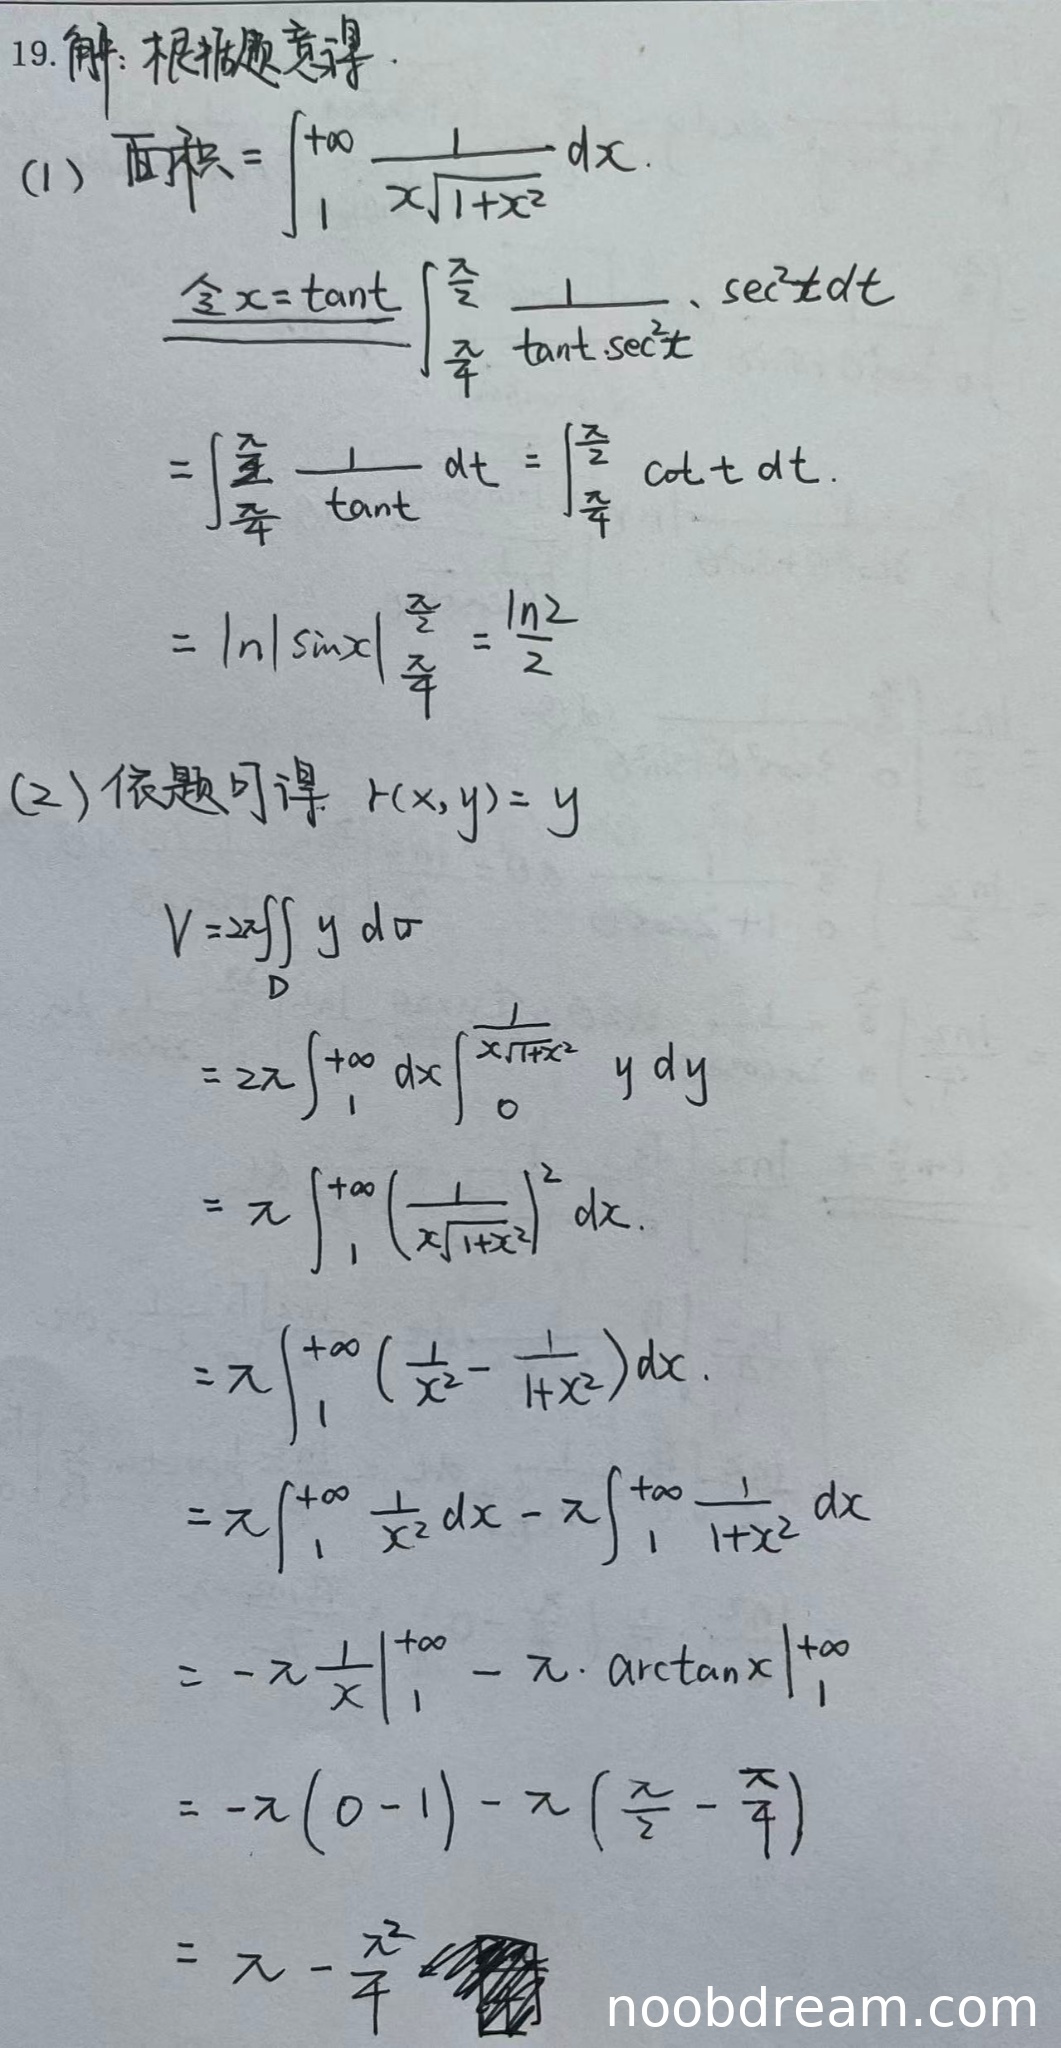 19. 解：根据题意得.
(1) 面积 = ∫₁^{+∞} 1/(x√(1+x²)) dx.
令 x = tant ∫_{π/4}^{π/2} 1/(tant·sec²t) · sec²t dt
= ∫_{π/4}^{π/2} 1/tant dt = ∫_{π/4}^{π/2} cot t dt.
= ln|sinx| |_{π/4}^{π/2} = ln2/2
(2) 依题可得 r(x,y) = y
V = 2π∬_D y dσ
= 2π ∫₁^{+∞} dx ∫₀^{1/(x√(1+x²))} y dy
= π ∫₁^{+∞} (1/(x√(1+x²)))² dx.
= π ∫₁^{+∞} (1/x² - 1/(1+x²)) dx.
= π ∫₁^{+∞} 1/x² dx - π ∫₁^{+∞} 1/(1+x²) dx
= -π 1/x |₁^{+∞} - π · arctanx |₁^{+∞}
= -π (0 - 1) - π (π/2 - π/4)
= π - π²/4
noobdream.com